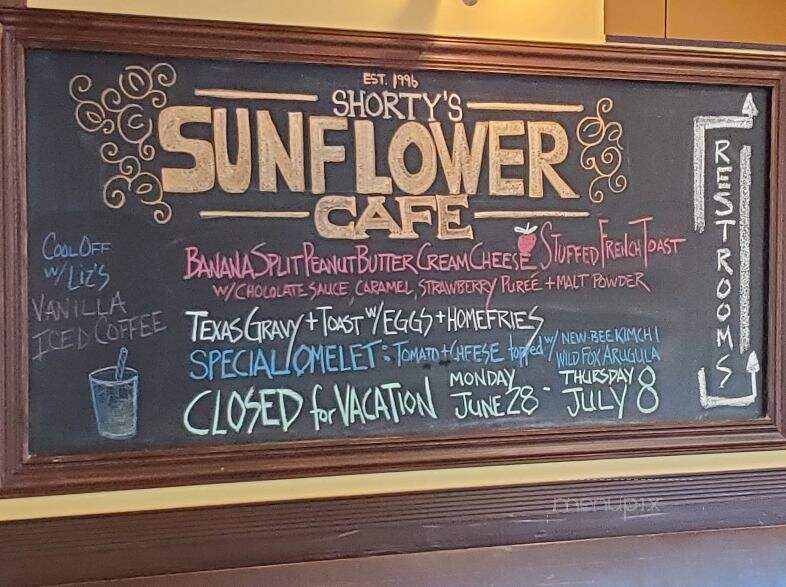 EST. 1996
SHORTY'S
SUNFLOWER
CAFE
COOL OFF
W/ LIZ'S
VANILLA
ICED COFFEE
BANANA SPLIT PEANUT BUTTER CREAM CHEESE STUFFED FRENCH TOAST
W/ CHOLOLATE SAUCE, CARAMEL, STRAWBERRY PUREE + MALT POWDER
TEXAS GRAVY + TOAST W/ EGGS + HOMEFRIES
SPECIAL OMELET: TOMATO + CHEESE topped w/ NEW BEE KIMCHI
WILD FOX ARUGULA
CLOSED for VACATION MONDAY JUNE 28 - THURSDAY JULY 8
RESTROOMS
menupix